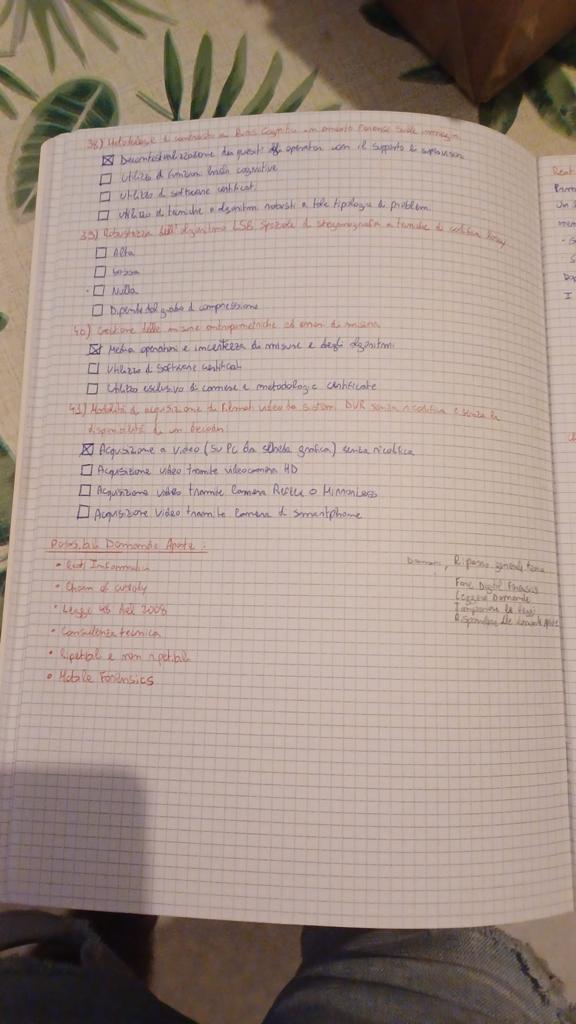 38) Metodologie di contrasto ai Bias Cognitivi in ambito Forense sulle immagini
Decontestualizzazione dei quesiti operatori con il supporto di supervisore
Utilizzo di funzioni cognitive
Utilizzo di software certificati
Utilizzo di tecniche e algoritmi robusti a tale tipologia di problemi
39) Robustezza dell'algoritmo LSB Spaziale di steganografia a tecniche di codifica
Alta
Bassa
Nulla
Dipende dal grado di compressione
40) Gestione delle misure antropometriche ed errori di misura
Media operatori e incertezza di misure e degli algoritmi
Utilizzo di software certificati
Utilizzo esclusivo di camere e metodologie certificate
41) Modalità di acquisizione di filmati video da sistemi DVR senza ricodifica e senza la
disponibilità di un decoder
Acquisizione a video (su PC da scheda grafica) senza ricodifica
Acquisizione video tramite videocamera HD
Acquisizione video tramite Camera Reflex o Mirrorless
Acquisizione video tramite Camera di smartphone
Possibili Domande Aperte:
• Reati Informatici
• Chain of custody
• Legge 48 del 2008
• Consulenza tecnica
• Ripetibili e non ripetibili
• Mobile Forensics
Domani, Ripasso generale teoria
Fare Digital Forensics
Leggere Domande
Imparare le leggi
Rispondere alle domande Aperte